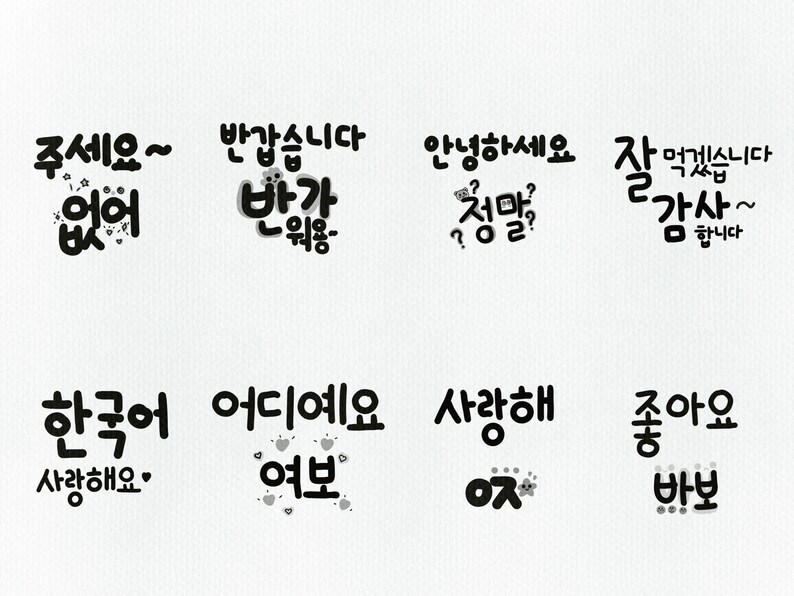 주세요~
없어
반갑습니다
반가
워용~
안녕하세요
정말?????
잘 먹겠습니다
감사~
합니다
한국어
사랑해요♥
어디예요
여보
사랑해
ㅇㅈ
좋아요
바보